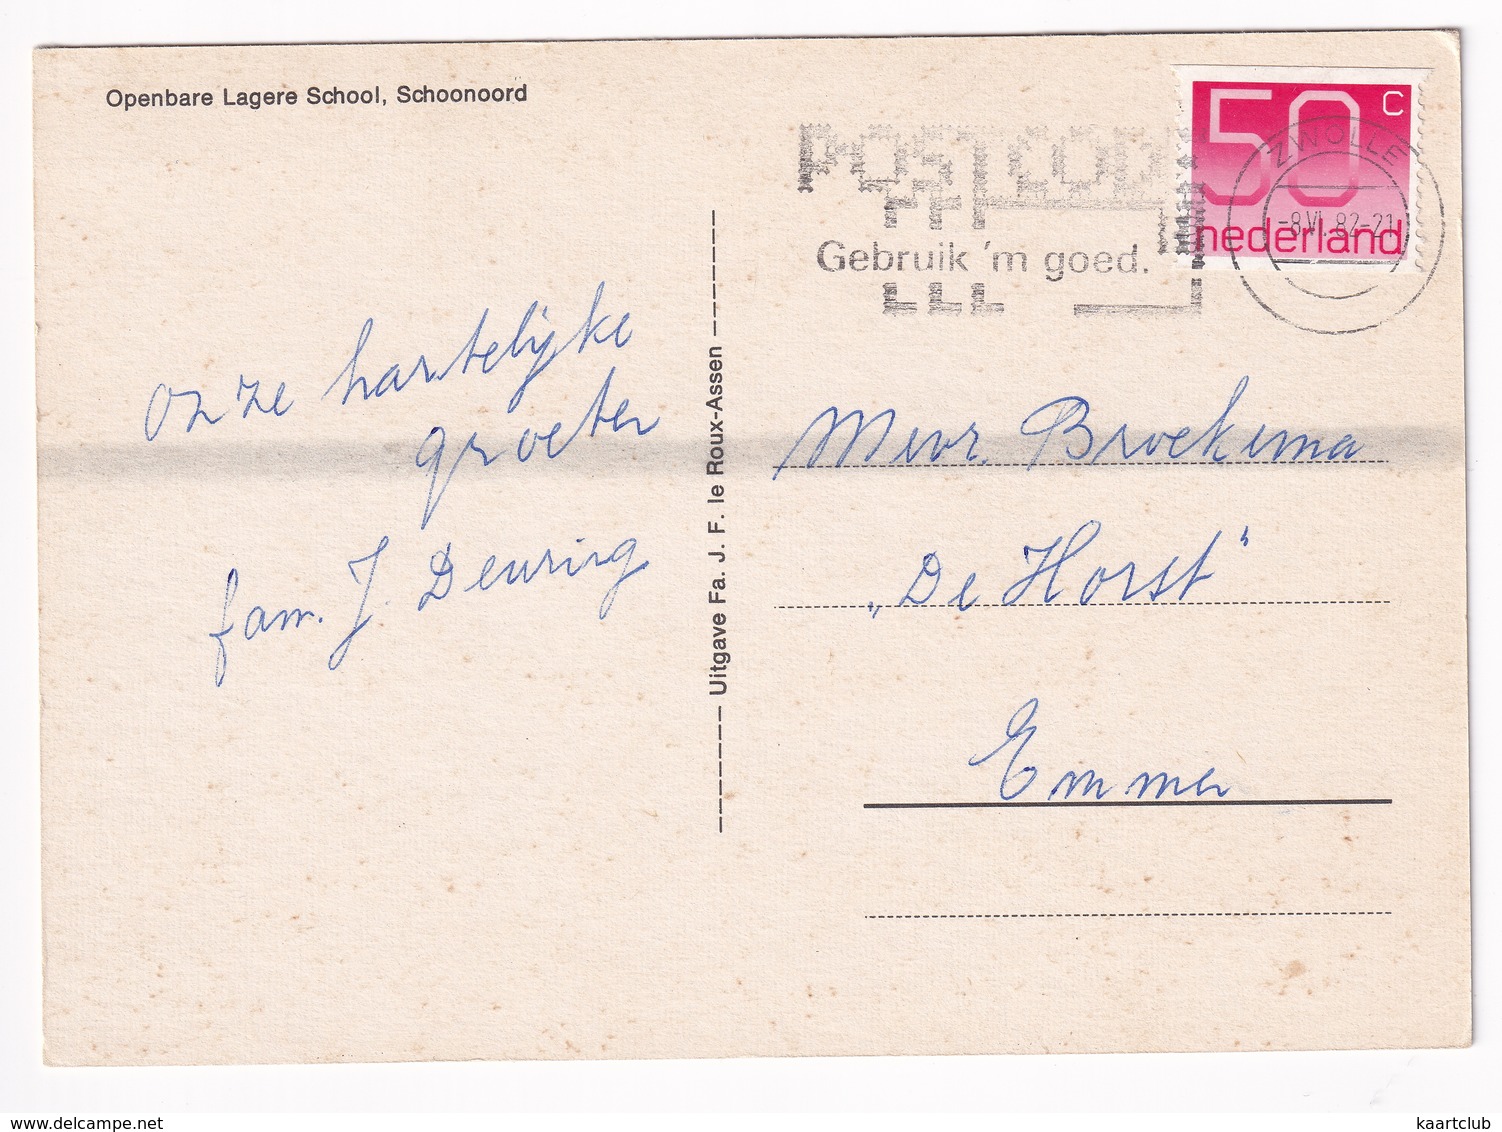 Openbare Lagere School, Schoonoord
POSTCODE
Gebruik 'm goed.
50 c
nederland
ZWOLLE
-8.VI.82-21
onze hartelijke
groeten
fam. J. Deuring
Uitgave Fa. J. F. le Roux-Assen
Mevr. Broekema
„De Horst"
Emmen
kaartclub